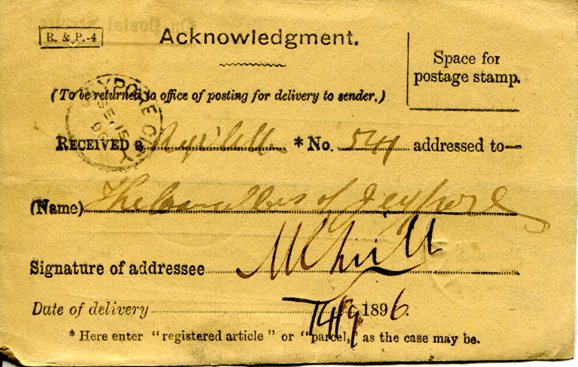 R. & P.-4
Acknowledgment.
Space for
postage stamp.
(To be returned to office of posting for delivery to sender.)
JEYPORE CITY
SE 15
RECEIVED a * No. 541 addressed to—
(Name) The of Jeypore
Signature of addressee
Date of delivery 14/9 1896.
* Here enter "registered article" or "parcel," as the case may be.